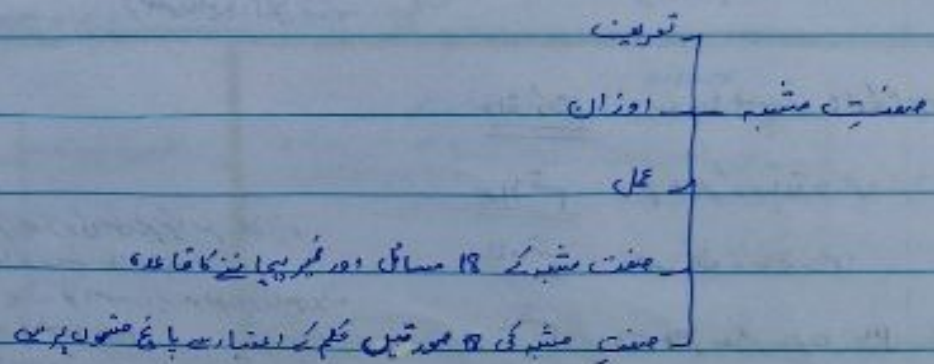 تعریف
صفتِ مشبہ
اوزان
عمل
صفت مشبہ کے 18 مسائل اور ضمیر پہچاننے کا قاعدہ
صفتِ مشبہ کی 18 صورتیں حکم کے اعتبار سے پانچ قسموں پر ہیں